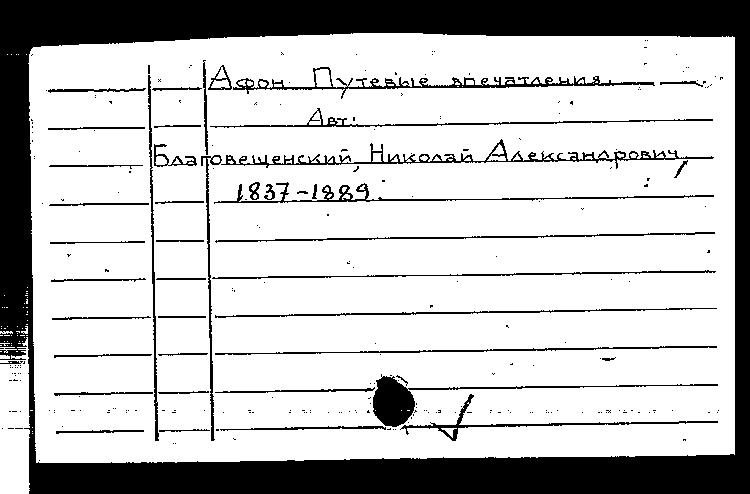 Афон. Путевые впечатления.
Авт:
Благовещенский, Николай Александрович,
1837-1889.